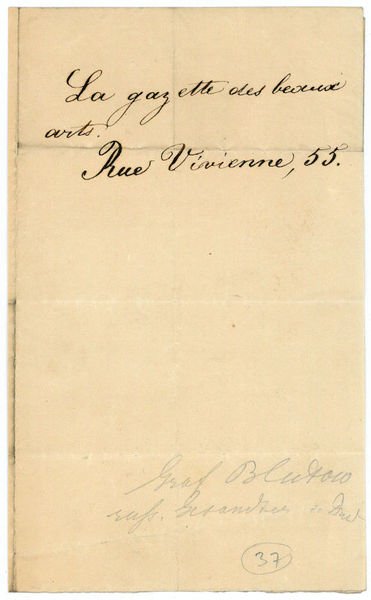 La gazette des beaux
arts.
Rue Vivienne, 55.
Graf Bludow
russ. Gesandter
37